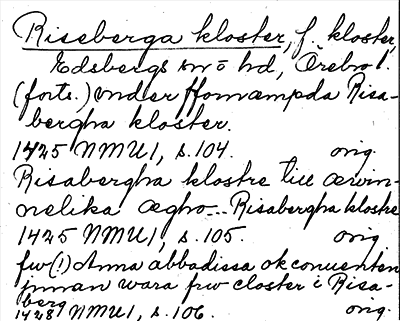 Riseberga kloster, f. kloster,
Edsbergs sn o hd, Örebro l.
(forts.) vnder ffornæmpda Risa-
bergha kloster.
1425 NMU 1, s. 104. orig.
Risabergha klostre till æwin-
nelika ægho... Risabergha klostre
1425 NMU 1, s. 105. orig.
fw(!) Anna abbadissa ok conuenten
jnnan wara frw closter i Risa-
berg
1428 NMU 1, s. 106. orig.